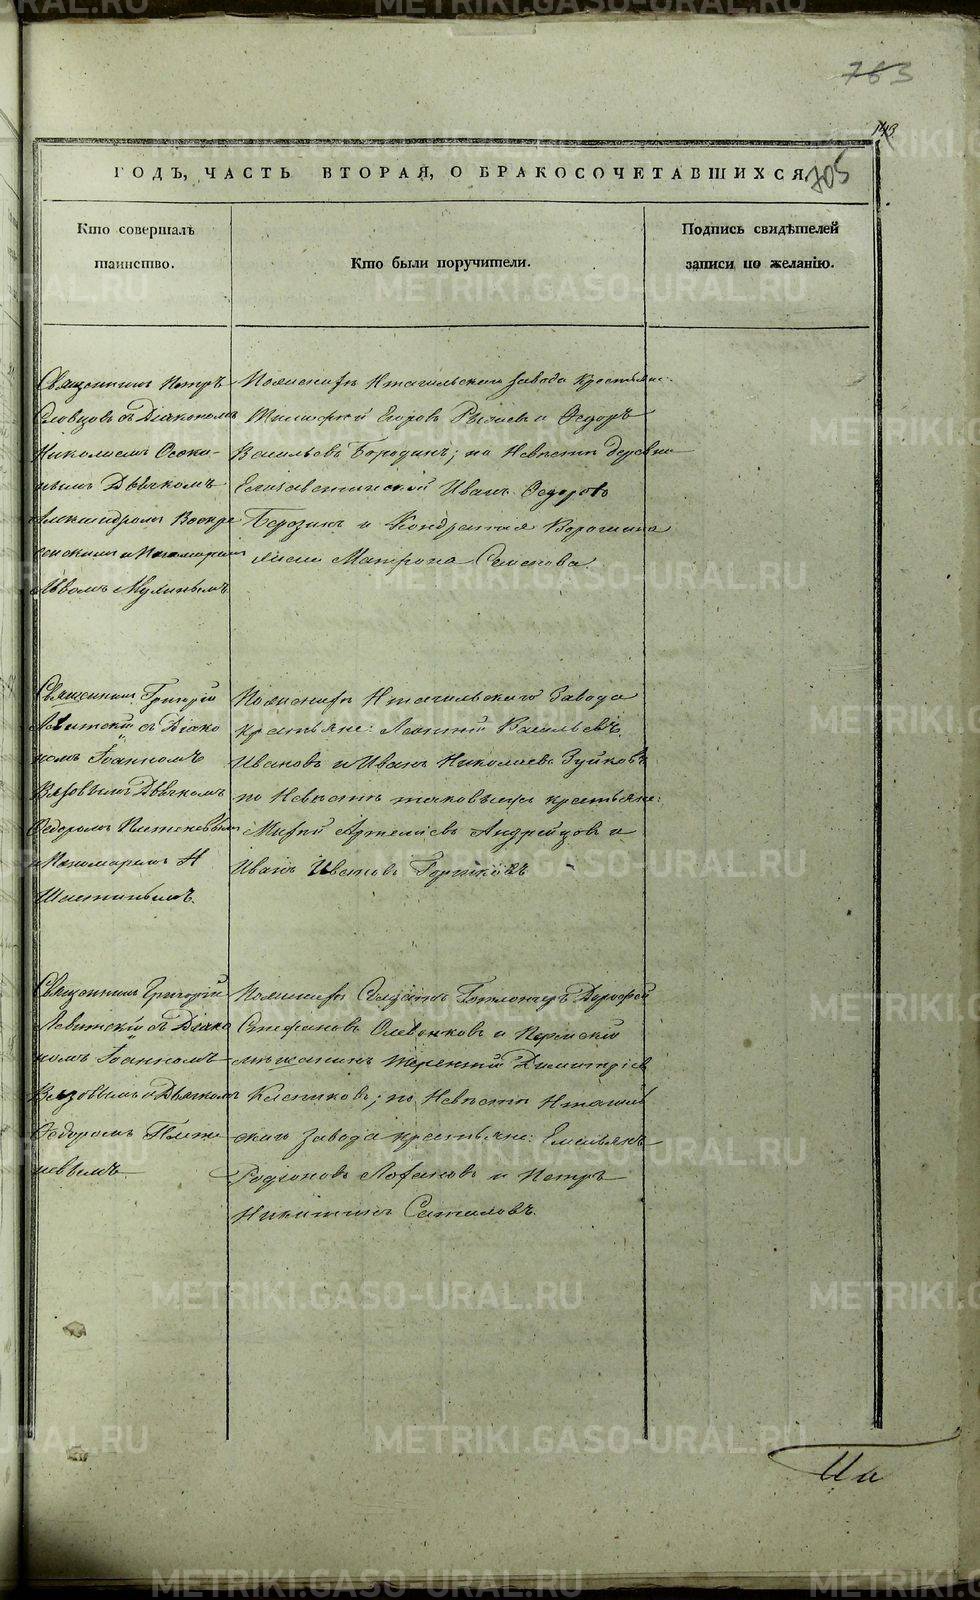 763
143
705
ГОДЪ, ЧАСТЬ ВТОРАЯ, О БРАКОСОЧЕТАВШИХСЯ
Кто совершалъ
таинство.
Кто были поручители.
Подпись свидѣтелей
записи по желанію.
Священникъ Петръ
Словцовъ съ Діакономъ
Николаемъ Осоки-
нымъ Дьячкомъ
Александромъ Воскре
сенскимъ и Пономаремъ
По женихѣ Нтагильскаго завода крестьяне:
Егоровъ и Ѳедоръ
Васильевъ Бородинъ; по Невѣстѣ деревни
Елизаветинской Иванъ Ѳедоровъ
Берозинъ и Кондратія Ворошина
Матрона Семенова
Священникъ Григорій
Левитскій съ Діако
номъ Іоанномъ
Вязовымъ Дьячкомъ
Ѳедоромъ
и Пономаремъ Н
По женихѣ Нтагильскаго Завода
крестьяне: Леонтій Васильевъ
Ивановъ и Иванъ Николаевъ Зуйковъ
по Невѣстѣ таковыежъ крестьяне:
Андрейцовъ и
Иванъ Ивановъ
Священникъ Григорій
Левитскій съ Діако
номъ Іоанномъ
Вязовымъ и Дьячкомъ
Ѳедоромъ
По женихѣ Солдатъ Дорофей
Стефановъ и Пермскій
мѣщанинъ Терентій Димитріев
Клепиковъ; по Невѣстѣ Нтагиль
скаго завода крестьяне: Емельянъ
Родіоновъ и Петръ
Никитинъ
METRIKI.GASO-URAL.RU